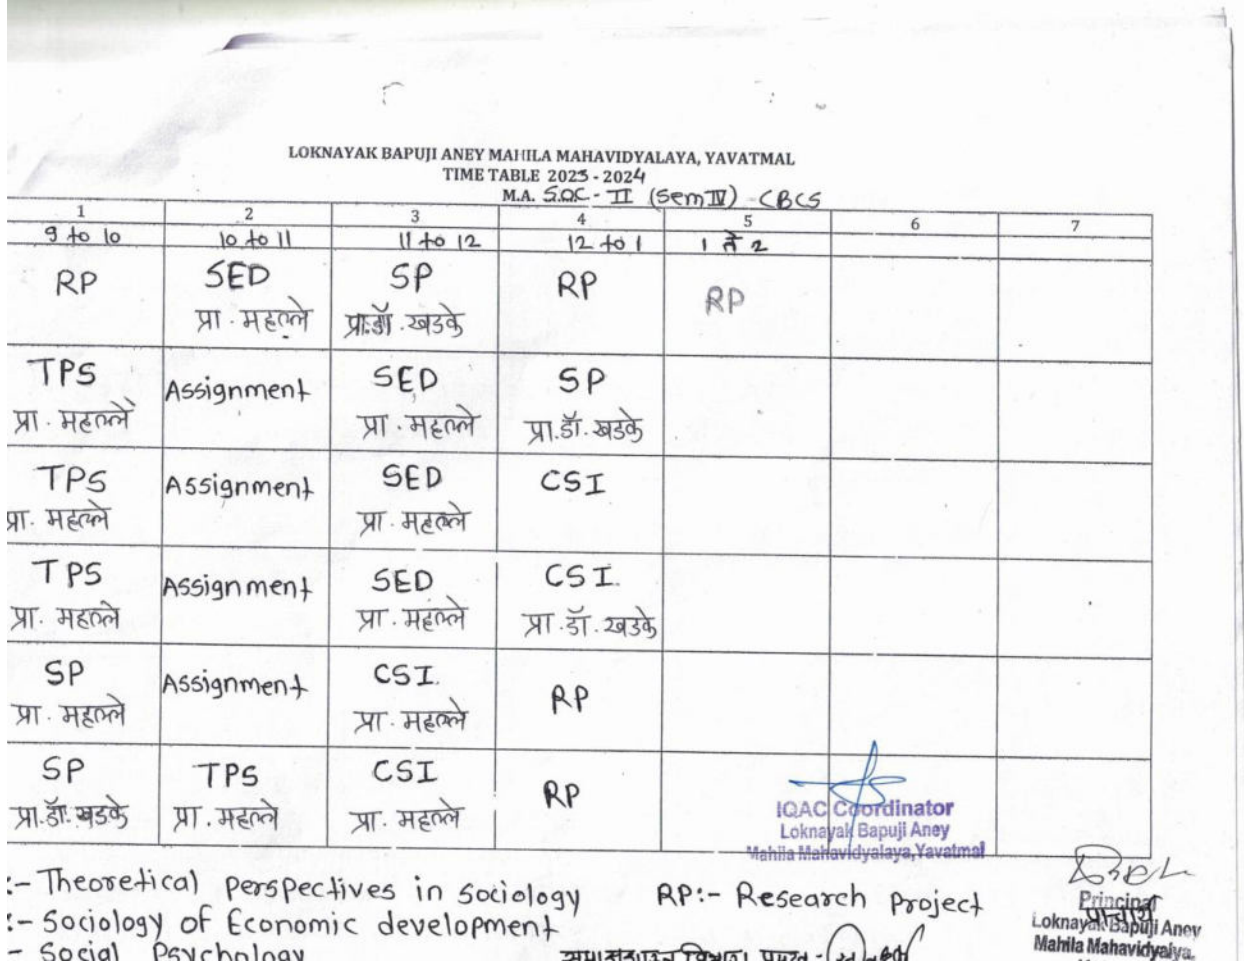 LOKNAYAK BAPUJI ANEY MAHILA MAHAVIDYALAYA, YAVATMAL
TIME TABLE 2023 - 2024
M.A. SOC - II (Sem IV) - CBCS
1 2 3 4 5 6 7
9 to 10 10 to 11 11 to 12 12 to 1 1 ते 2
RP SED SP RP RP
प्रा. महल्ले प्रा.डॉ. खडके
TPS Assignment SED SP
प्रा. महल्ले प्रा. महल्ले प्रा.डॉ. खडके
TPS Assignment SED CSI
प्रा. महल्ले प्रा. महल्ले
TPS Assignment SED CSI.
प्रा. महल्ले प्रा. महल्ले प्रा.डॉ. खडके
SP Assignment CSI. RP
प्रा. महल्ले प्रा. महल्ले
SP TPS CSI RP
प्रा.डॉ. खडके प्रा. महल्ले प्रा. महल्ले
IQAC Coordinator
Loknayak Bapuji Aney
Mahila Mahavidyalaya, Yavatmal
:- Theoretical perspectives in sociology RP:- Research project
:- Sociology of Economic development
- Social Psychology
Principal
प्राचार्य
Loknayak Bapuji Aney
Mahila Mahavidyalya,